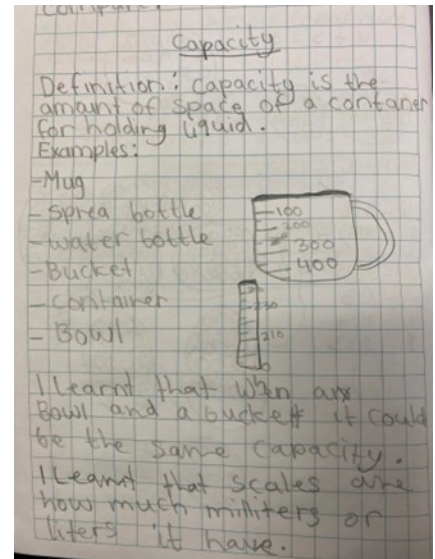 Capacity
Definition: Capacity is the
amount of space of a contaner
for holding liquid.
Examples:
-Mug
- Sprea bottle
-water bottle
-Bucket
- Container
- Bowl
100
200
300
400
210
I Learnt that when
Bowl and a bucket it could
be the same capacity.
I Learnt that scales are
how much milliters or
liters it have.